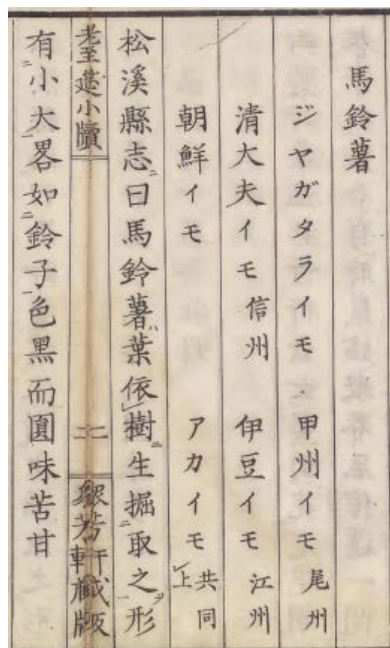 馬鈴薯
ジヤガタライモ・甲州イモ 尾州
清大夫イモ 信州 伊豆イモ 江州
朝鮮イモ アカイモ 共同上
松溪縣志ニ曰馬鈴薯ハ葉依㆑樹ニ生掘㆓取之㆒形
耋筵小牘 二 衆芳軒藏版
有㆓小大㆒畧如㆓鈴子㆒色黑而圓味苦甘